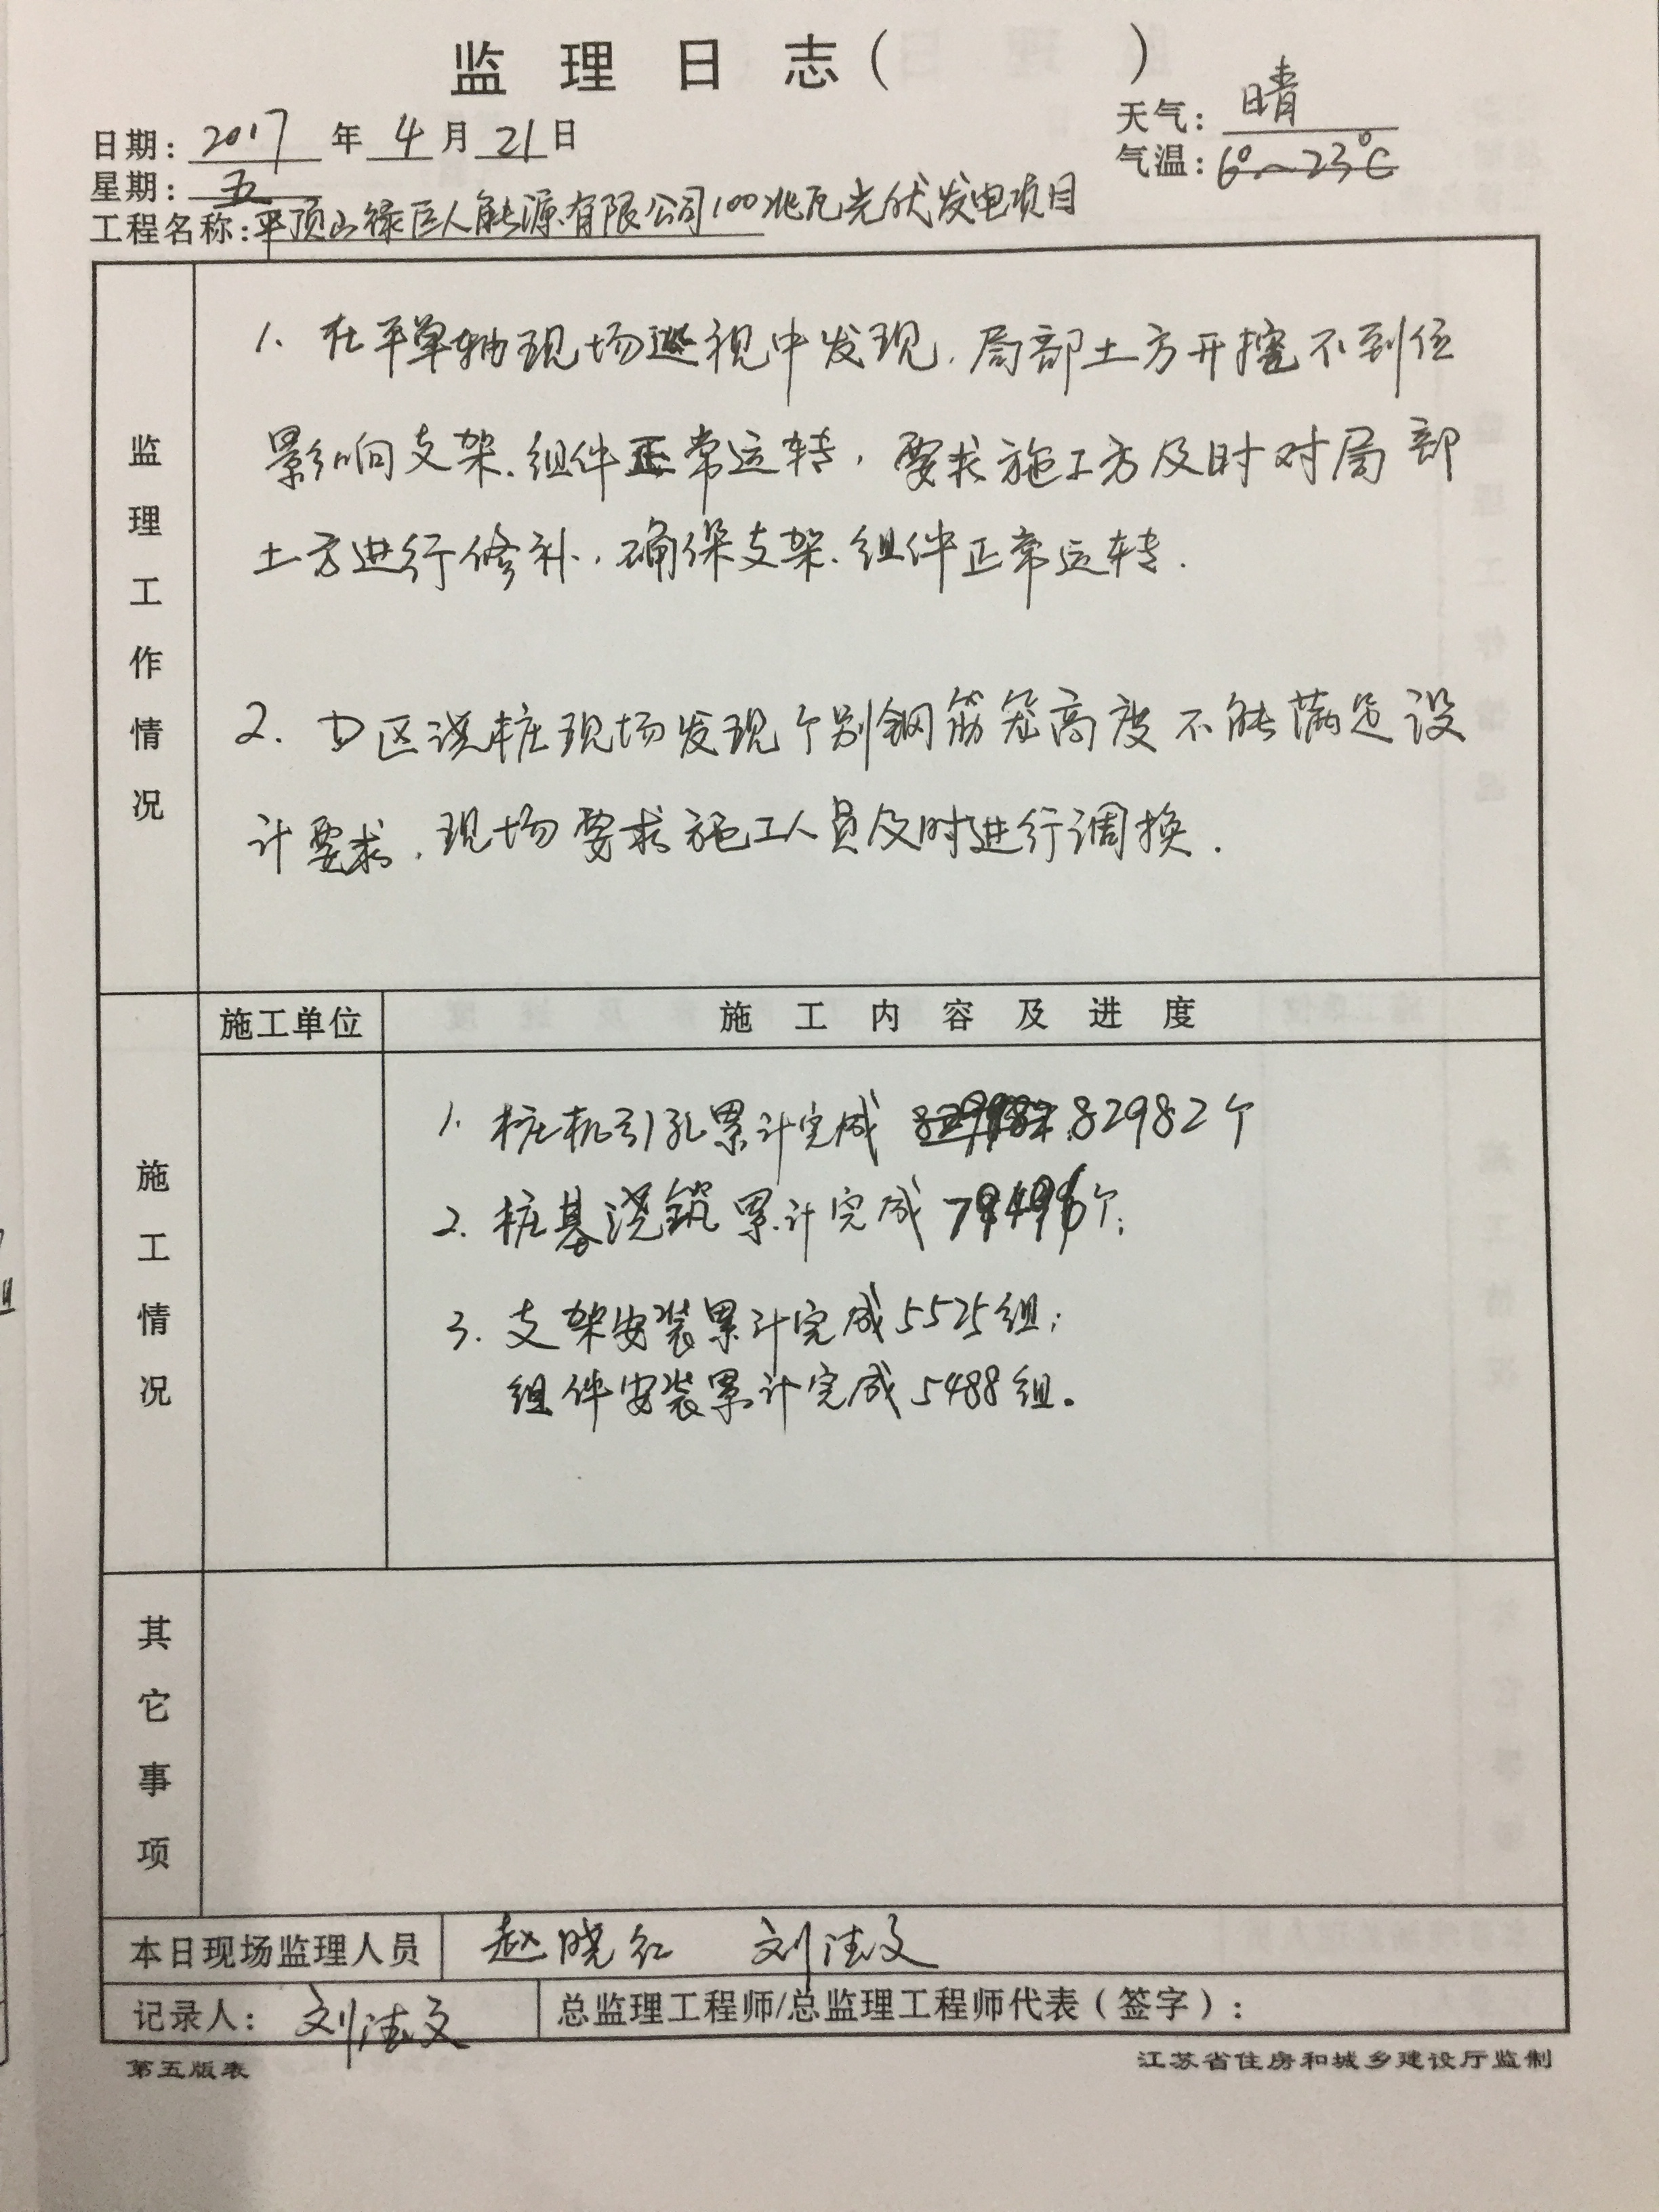 监理日志(    )
日期: 2017 年 4 月 21 日
天气: 晴
星期: 五
气温: 6°~23°C
工程名称: 平顶山禄巨人能源有限公司100兆瓦光伏发电项目
监理工作情况
1. 在平单轴现场巡视中发现,局部土方开挖不到位
影响支架、组件正常运转,要求施工方及时对局部
土方进行修补,确保支架、组件正常运转.
2. D区浇桩现场发现个别钢筋笼高度不能满足设
计要求,现场要求施工人员及时进行调换.
施工情况
施工单位
施工内容及进度
1. 桩机引孔累计完成 82982个
2. 桩基浇筑累计完成 个;
3. 支架安装累计完成5525组;
组件安装累计完成5488组。
其它事项
本日现场监理人员
赵晓红 刘法文
记录人: 刘法文
总监理工程师/总监理工程师代表(签字):
第五版表
江苏省住房和城乡建设厅监制